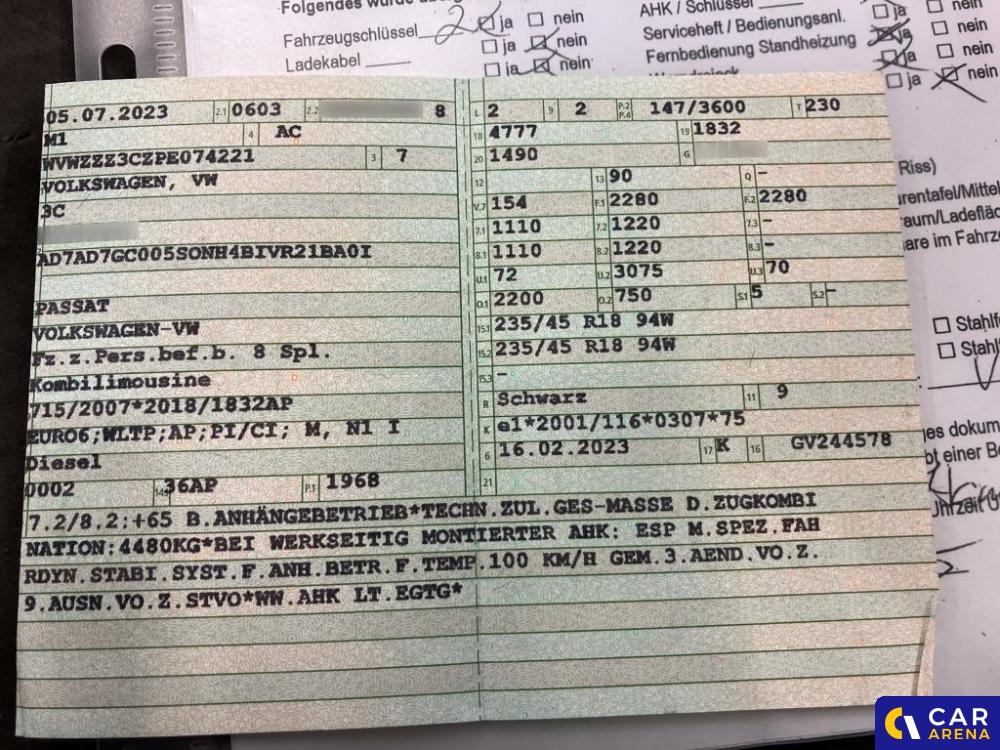 Folgendes wurde
Fahrzeugschlüssel 2 ja nein
Ladekabel ja nein
ja nein
AHK / Schlüssel ja nein
Serviceheft / Bedienungsanl. ja nein
Fernbedienung Standheizung ja nein
ja nein
05.07.2023 2.1 0603 2.2 8
M1 4 AC
WVWZZZ3CZPE074221 3 7
VOLKSWAGEN, VW
3C
AD7AD7GC005SONH4BIVR21BA0I
PASSAT
VOLKSWAGEN-VW
Fz.z.Pers.bef.b. 8 Spl.
Kombilimousine
715/2007*2018/1832AP
EURO6;WLTP;AP;PI/CI; M, N1 I
Diesel
0002 14.1 36AP P.1 1968
L 2 9 2 P.2 P.4 147/3600 T 230
18 4777 19 1832
20 1490 G
12 13 90 Q -
V.7 154 F.1 2280 F.2 2280
7.1 1110 7.2 1220 7.3 -
8.1 1110 8.2 1220 8.3 -
U.1 72 U.2 3075 U.3 70
O.1 2200 O.2 750 S.1 5 S.2 -
15.1 235/45 R18 94W
15.2 235/45 R18 94W
15.3 -
R Schwarz 11 9
K e1*2001/116*0307*75
6 16.02.2023 17 K 16 GV244578
21
7.2/8.2:+65 B.ANHÄNGEBETRIEB*TECHN.ZUL.GES-MASSE D.ZUGKOMBI
NATION:4480KG*BEI WERKSEITIG MONTIERTER AHK: ESP M.SPEZ.FAH
RDYN.STABI.SYST.F.ANH.BETR.F.TEMP.100 KM/H GEM.3.AEND.VO.Z.
9.AUSN.VO.Z.STVO*WW.AHK LT.EGTG*
Riss)
arentafel/Mittel
aum/Ladefläc
are im Fahrze
Stahlfe
Stahl
es dokum
bt einer Be
CAR
ARENA